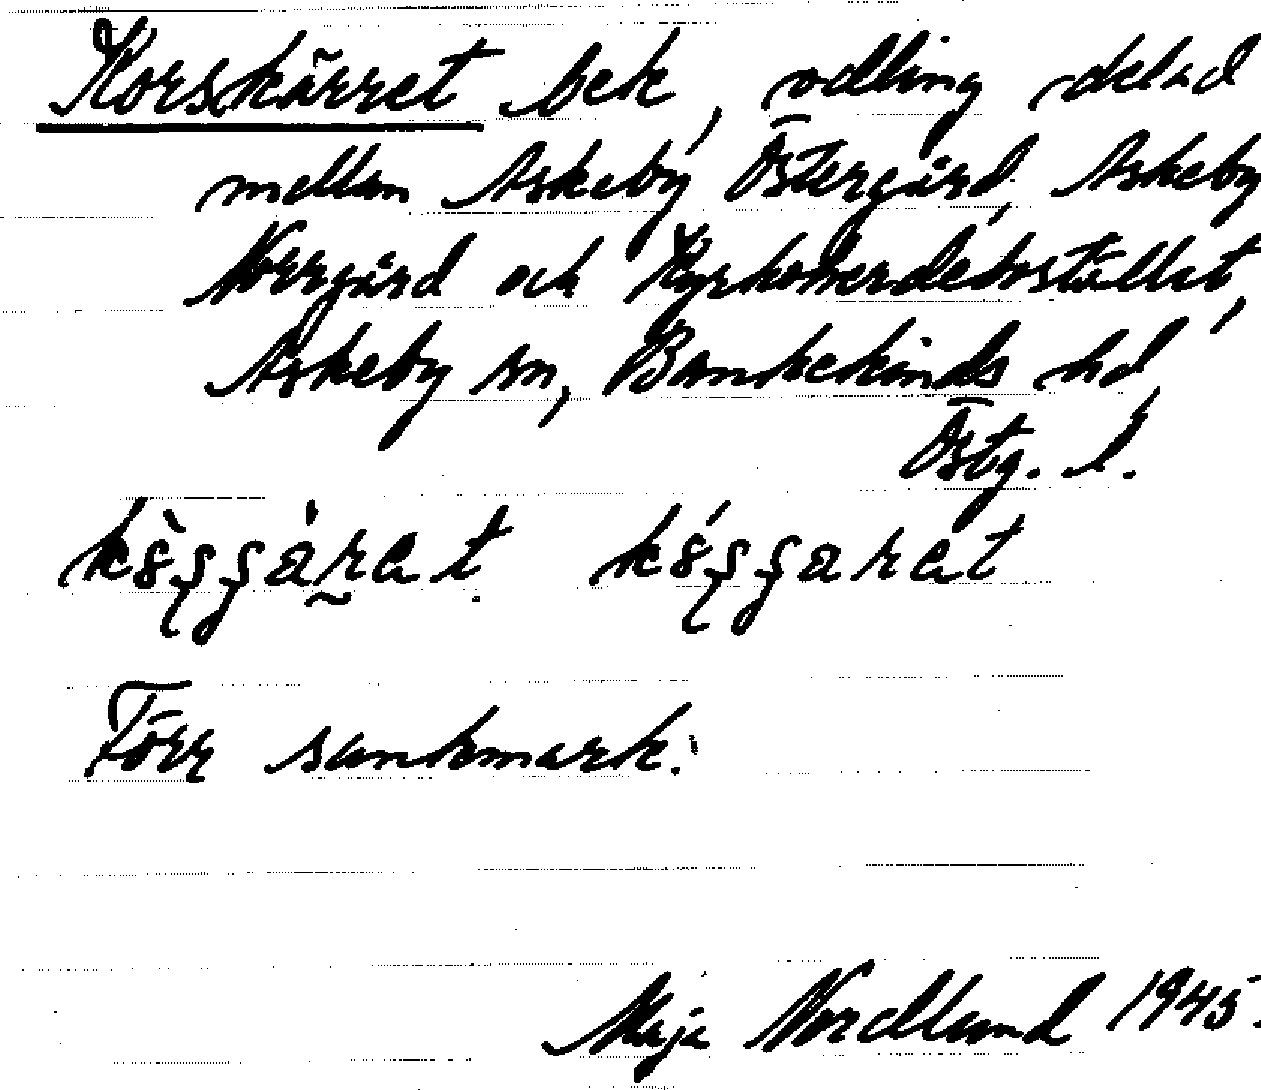 Korskärret bek, odling delad
mellan Askeby Östergård, Askeby
Norrgård och Kyrkoherdebostället,
Askeby sn, Bankekinds hd,
Östg. l.
Förr sankmark.
Maja Nordlund 1945.